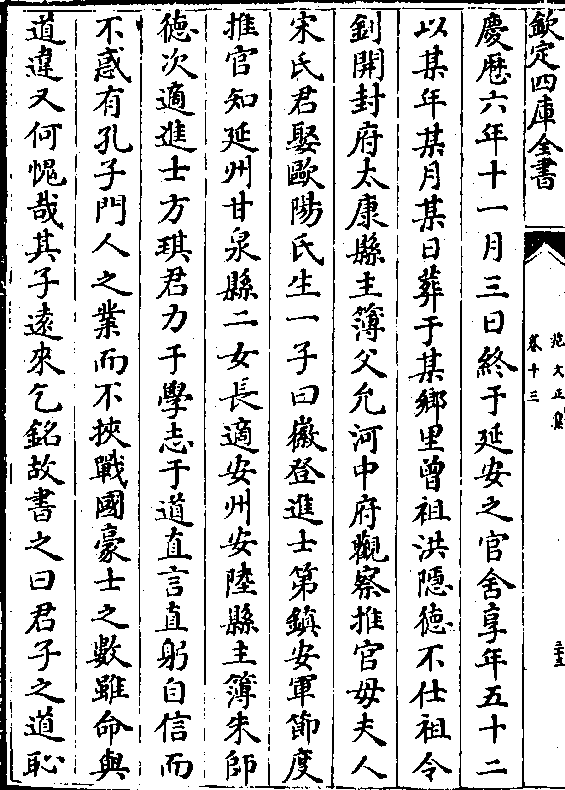 欽定四庫全書
范文正集
卷十三
二十五
慶厯六年十一月三日終于延安之官舍享年五十二
以某年某月某日葬于某鄉里曾祖洪隠徳不仕祖令
釗開封府太康縣主簿父允河中府觀察推官母夫人
宋氏君娶歐陽氏生一子曰徽登進士第鎮安軍節度
推官知延州甘泉縣二女長適安州安陸縣主簿朱師
徳次適進士方琪君力于學志于道直言直躬自信而
不惑有孔子門人之業而不挾戰國豪士之數雖命與
道違又何愧哉其子逺來乞銘故書之曰君子之道恥